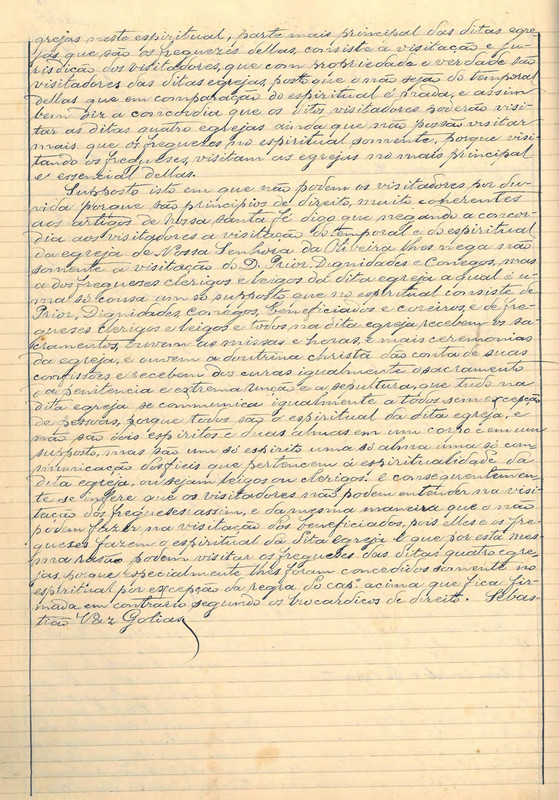 grejas neste espiritual, parte mais principal das ditas egre
jas que são os freguezes dellas, consiste a visitação e ju-
risdição dos visitadores, que com propriedade e verdade são
visitadores das ditas egrejas, posto que o não sejão do temporal
dellas que em comparação do espiritual é nada, e assim
bem diz a concordia que os ditos visitadores poderão visi
tar as ditas quatro egrejas ainda que não possão visitar
mais que os fregueses no espiritual somente, porque visi
tando os fregueses, visitam as egrejas no mais principal
e essencial dellas.
Supposto isto em que não podem os visitadores por du-
vida porque são principios de direito, muito coherentes
aos artigos de nossa santa fé digo que negando a concor-
dia aos visitadores a visitação do temporal e do espiritual
da egreja de Nossa Senhora da Oliveira lhes nega não
somente a visitação do D. Prior, Dignidades e Conegos, mas
a dos fregueses clerigos e leigos da dita egreja a qual é u-
ma só cousa um só supposto que no espiritual consiste de
Prior, Dignidades, Conegos, beneficiados e coreiros, e de fre-
gueses clerigos e leigos e todos na dita egreja recebem os sa-
cramentos, ouvem as missas e horas, e mais ceremonias
da egreja, e ouvem a doutrina christã dão conta de suas
confissões e recebem dos curas igualmente o sacramento
da penitencia e extrema unção e a sepultura, que tudo na
dita egreja se communica igualmente a todos sem excepção
de pessoas, porque todos são o espiritual da dita egreja, e
não são dois espiritos e duas almas em um corpo e em um
supposto, mas são um só espirito uma só alma uma só com
municação dos fieis que pertencem à espiritualidade da
dita egreja, ou sejam leigos ou clerigos. E consequentemen-
te se infere que os visitadores não podem entender na visi
tação dos fregueses assim, e da mesma maneira que o não
podem fazer na visitação dos beneficiados, pois elles e os fre
gueses fazem o espiritual da dita egreja e que por esta mes-
ma rasão podem visitar os fregueses das ditas quatro egre-
jas, porque especialmente lhes foram concedidos somente no
espiritual por excepção da regra do cap.º acima que fica fir-
mada em contrario segundo os brocardicos de direito. Sebas-
tião Vaz Golias